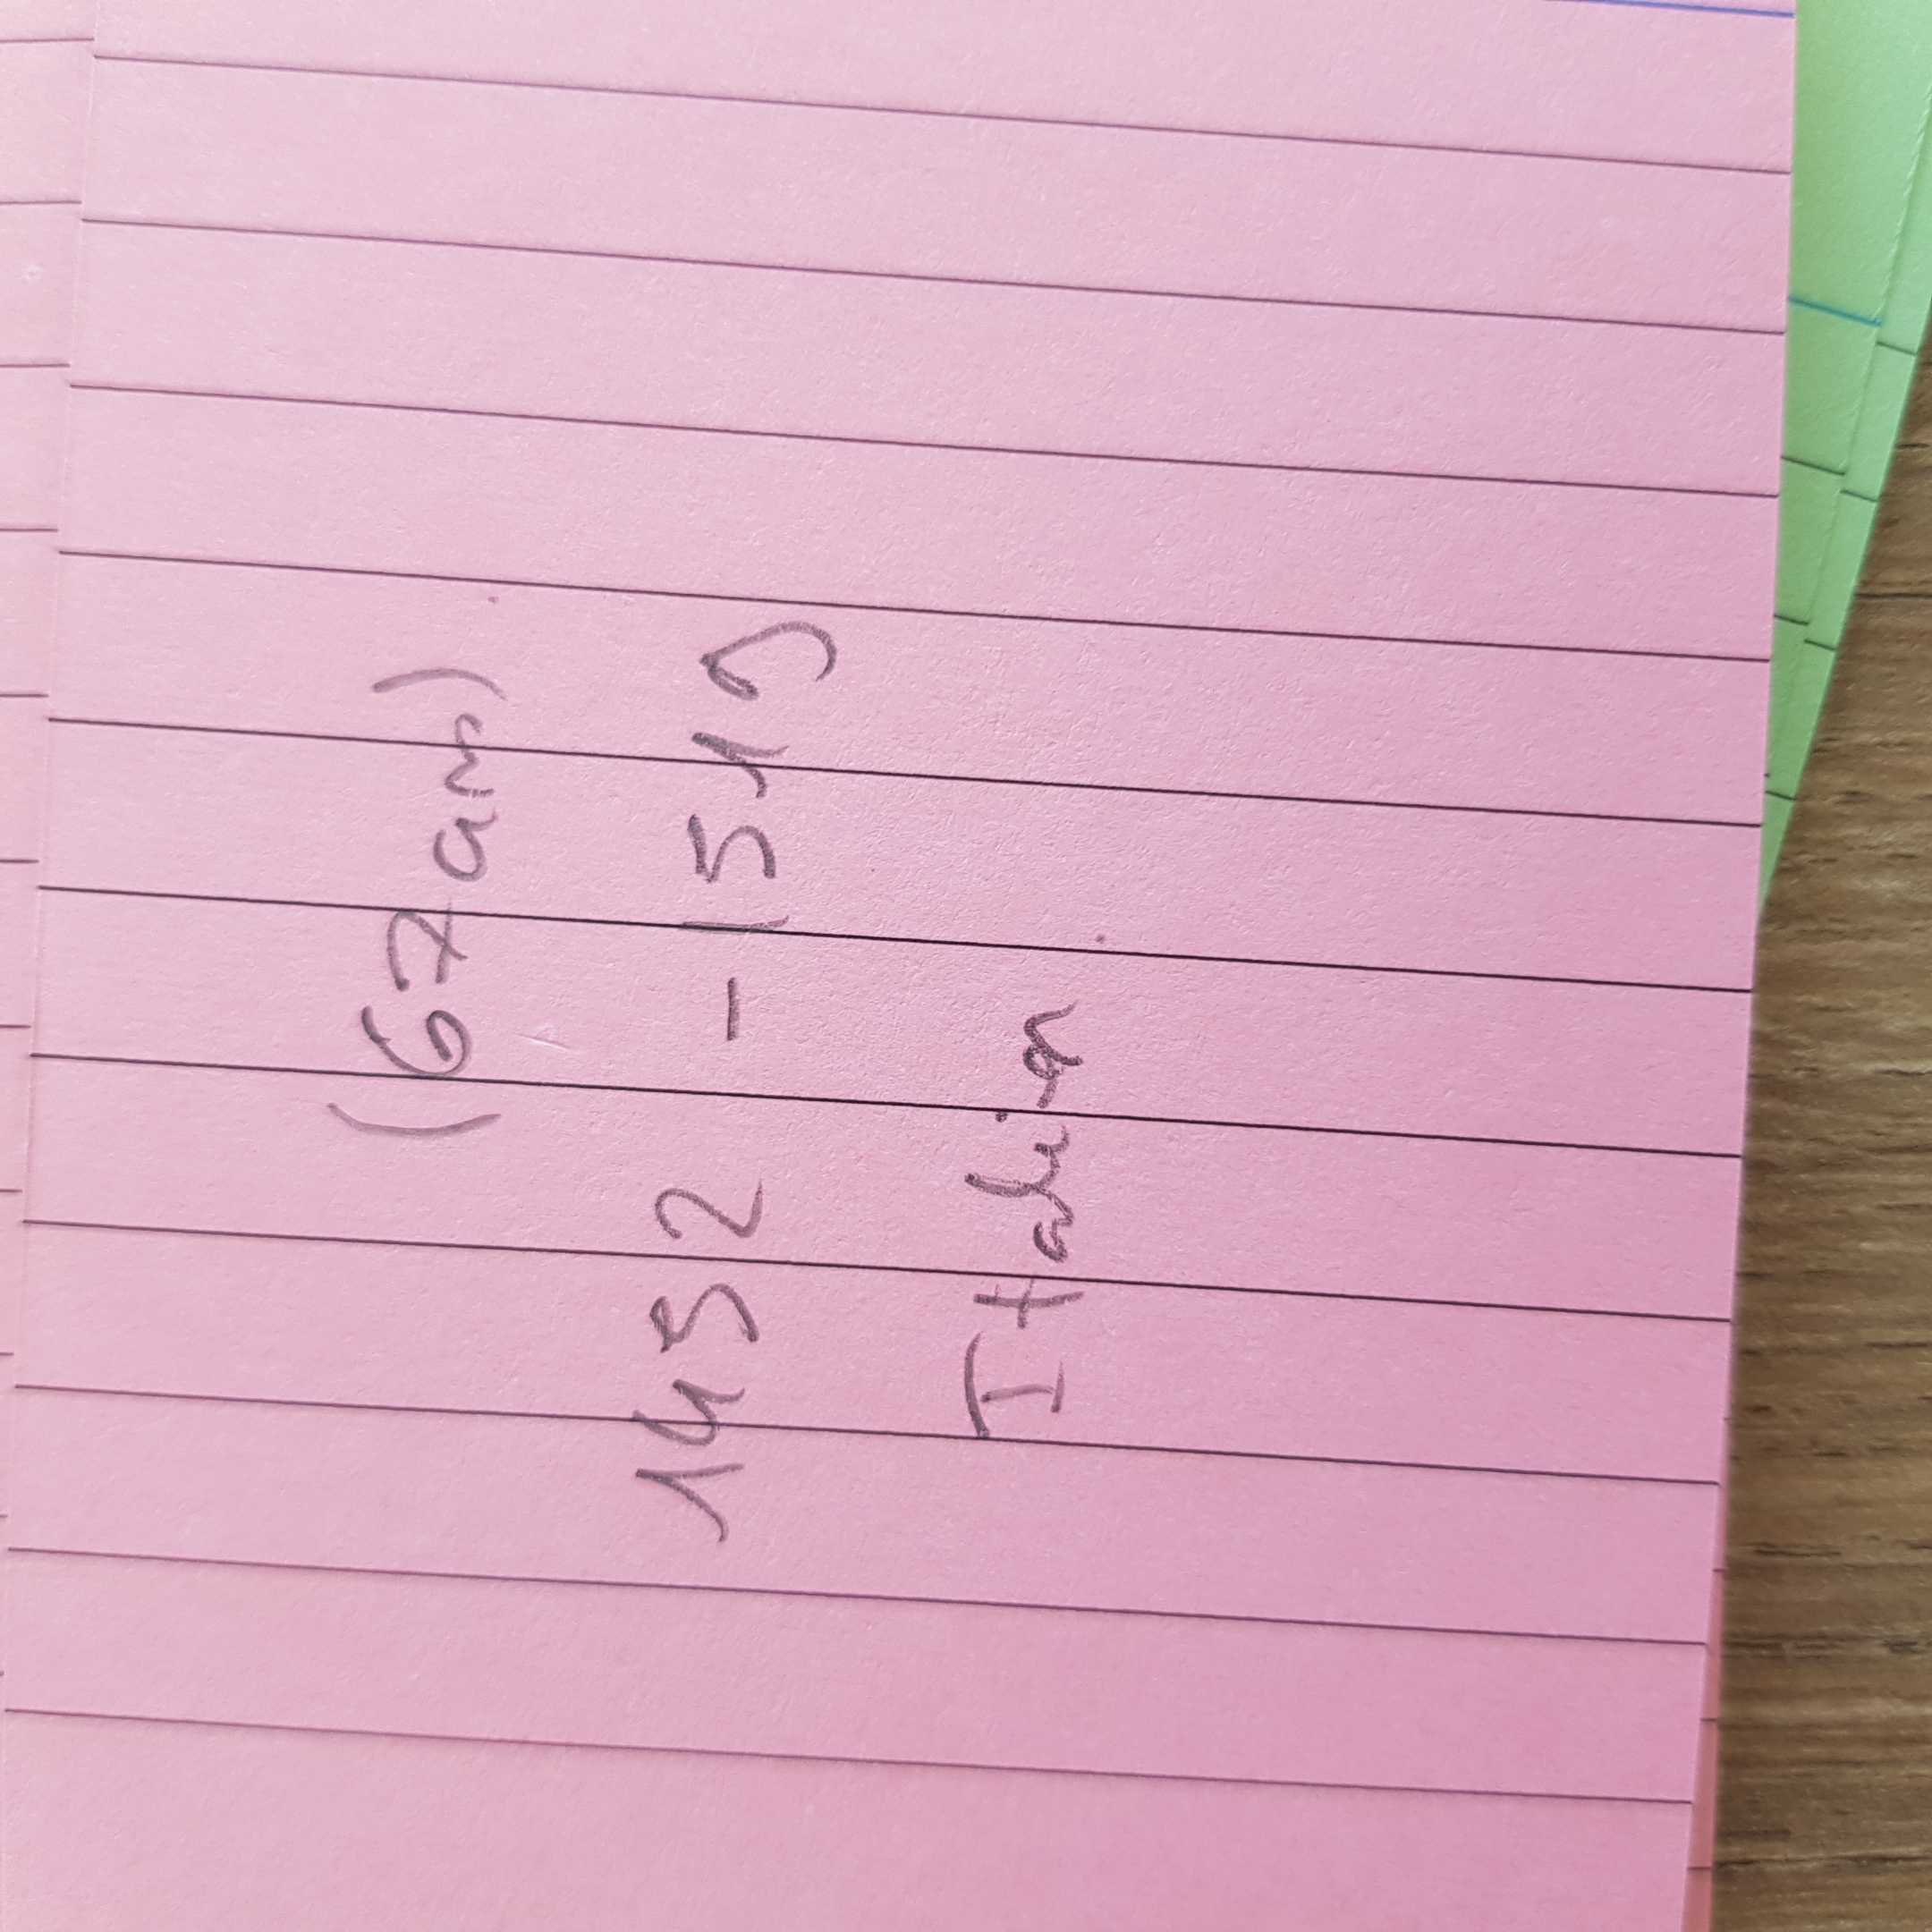 (67 ans)
1452 - 1519
Italien